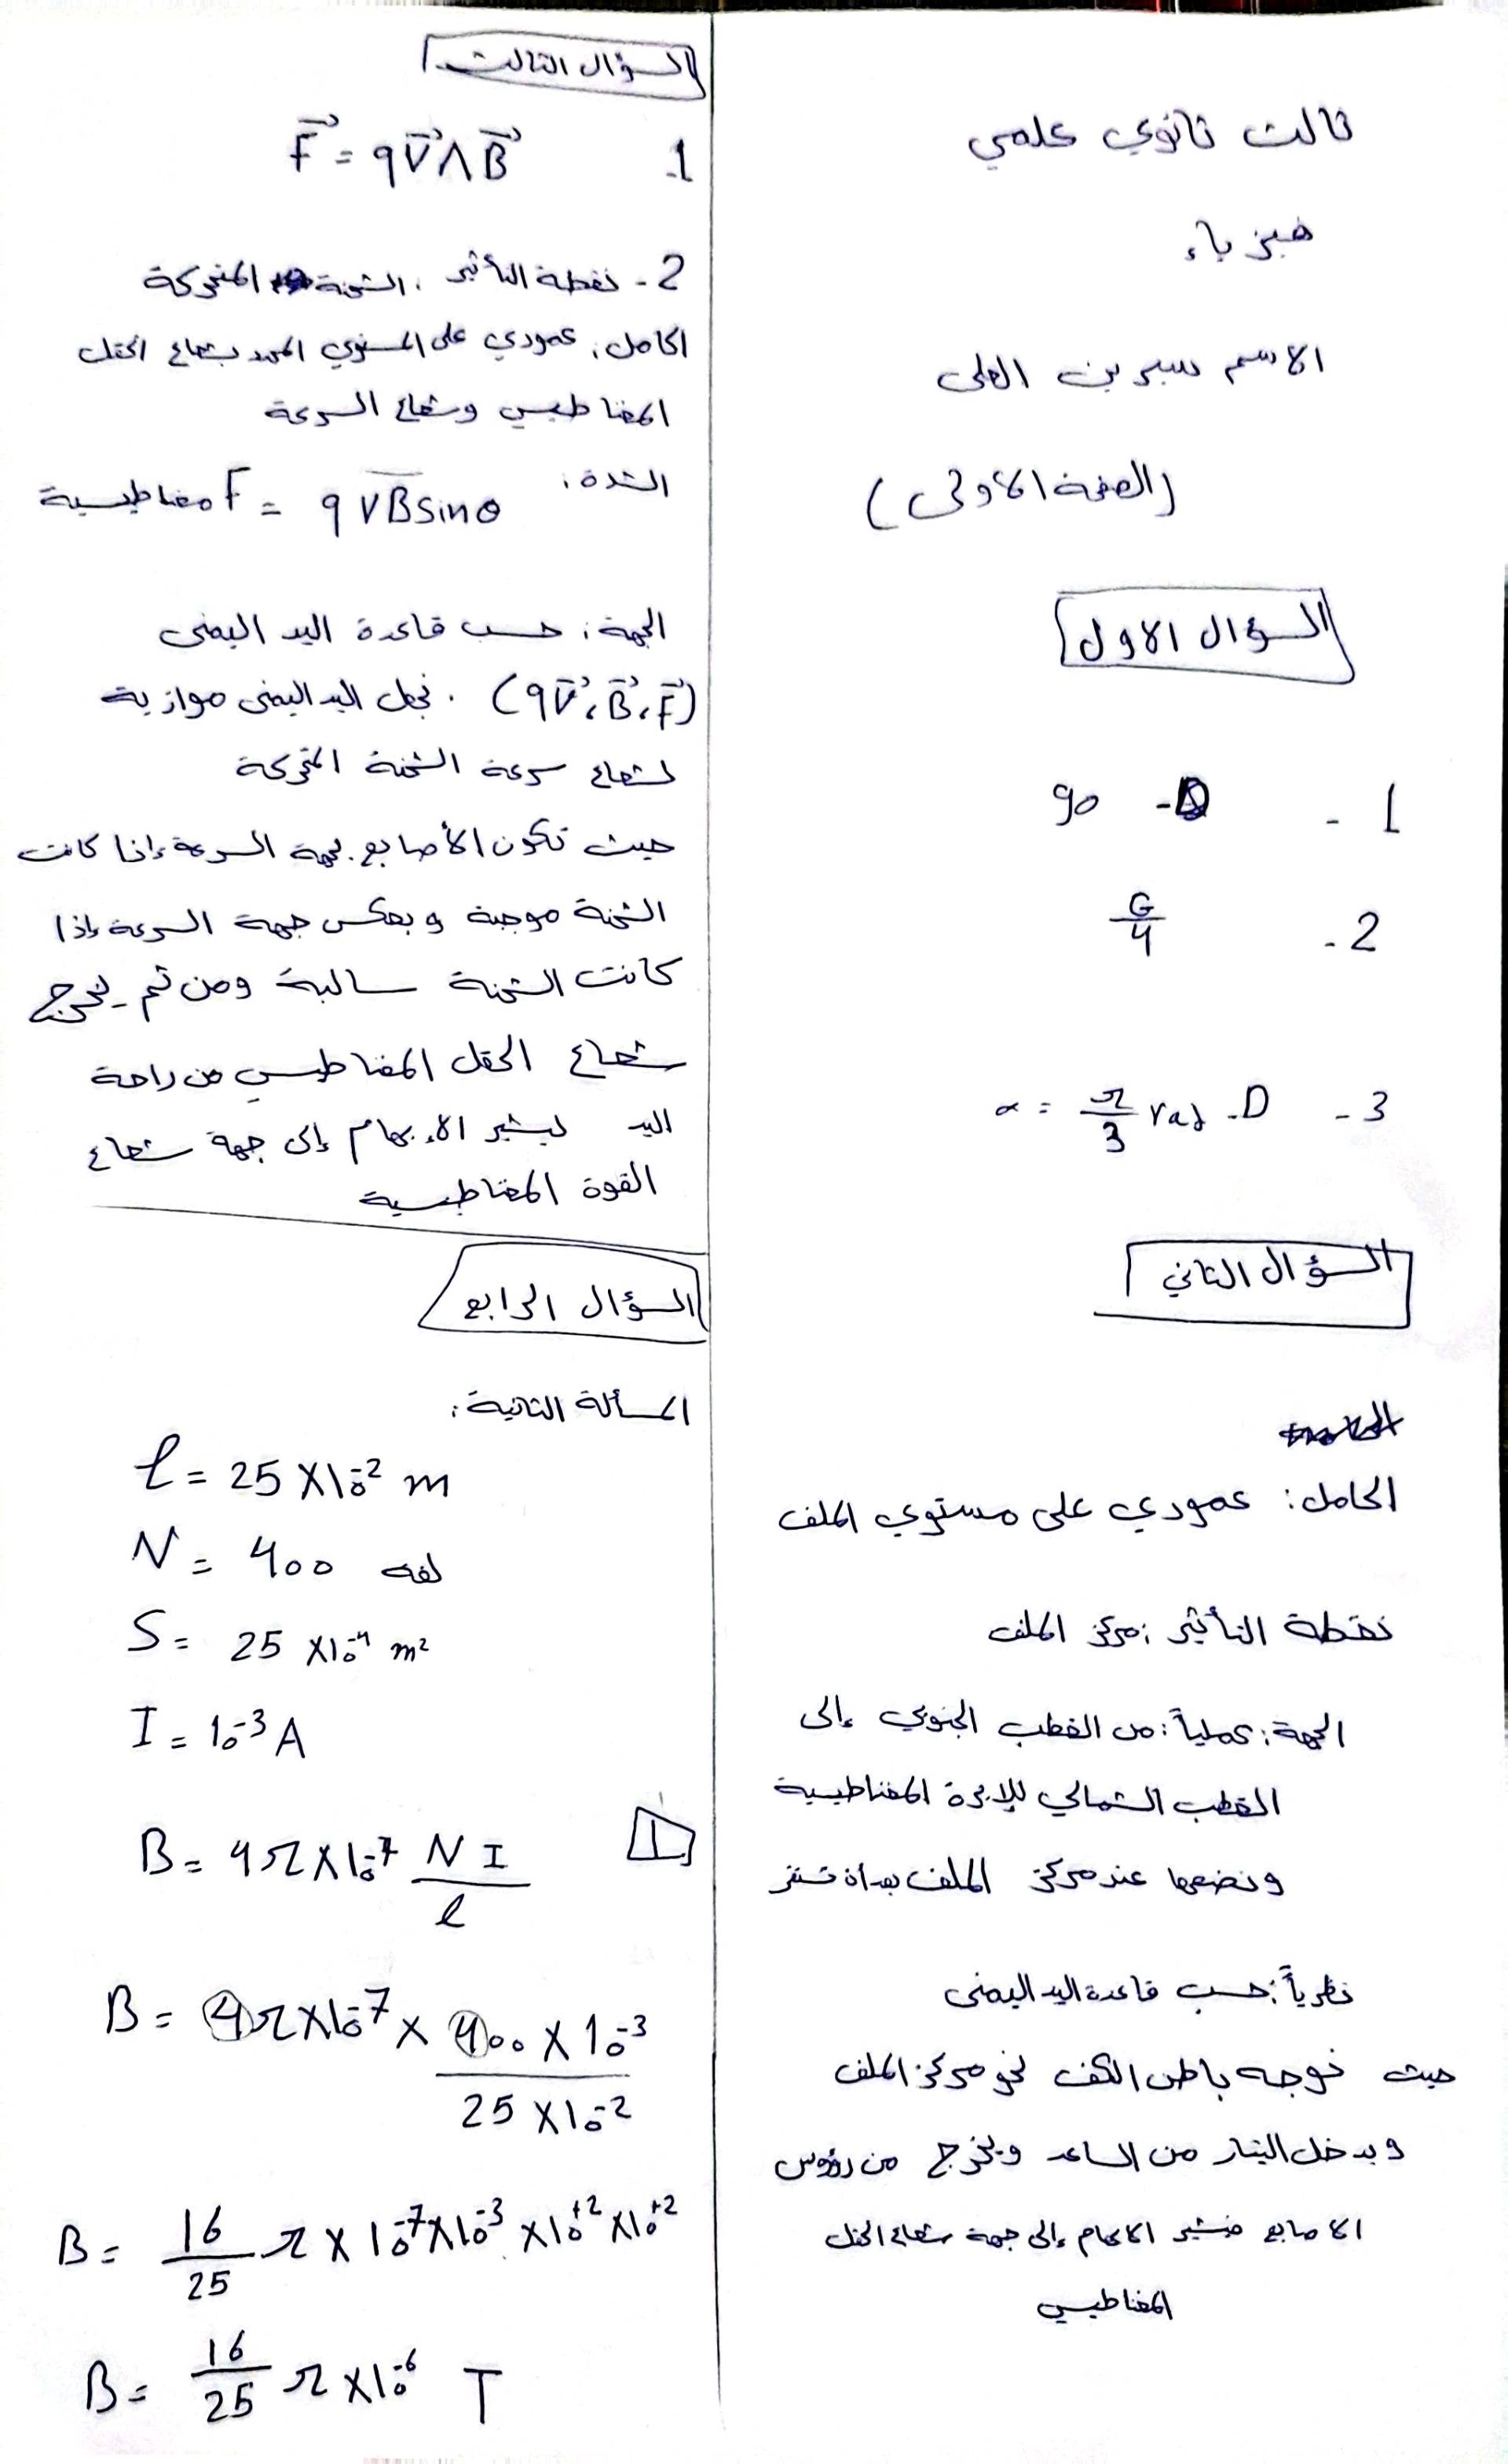 ثالث ثانوي علمي
فيزياء
الاسم سيرين العلي
(الصفحة الاولى)
السؤال الاول
1 - D - 90
2 - G/4
3 - D - α = π/3 rad
السؤال الثاني
الحامل: عمودي على مستوي الملف
نقطة التأثير: مركز الملف
الجهة: عملياً: من القطب الجنوبي إلى
القطب الشمالي للإبرة المغناطيسية
ونضعها عند مركز الملف بعد ان تستقر
نظرياً: حسب قاعدة اليد اليمنى
حيث نوجه باطن الكف نحو مركز الملف
ويدخل التيار من الساعد ويخرج من رؤوس
الاصابع فيشير الابهام إلى جهة شعاع الحقل
المغناطيسي
السؤال الثالث
1- F⃗ = qV⃗ ∧ B⃗
2- نقطة التأثير: الشحنة المتحركة
الحامل: عمودي على المستوي المحدد بشعاع الحقل
المغناطيسي وشعاع السرعة
الشدة: F مغناطيسية = qVBsinθ
الجهة: حسب قاعدة اليد اليمنى
(qV⃗, B⃗, F⃗). نجعل اليد اليمنى موازية
لشعاع سرعة الشحنة المتحركة
حيث تكون الأصابع بجهة السرعة إذا كانت
الشحنة موجبة وبعكس جهة السرعة إذا
كانت الشحنة سالبة ومن ثم يخرج
شعاع الحقل المغناطيسي من راحة
اليد ليشير الإبهام إلى جهة شعاع
القوة المغناطيسية
السؤال الرابع
المسألة الثانية:
ℓ = 25 × 10⁻² m
N = 400 لفه
S = 25 × 10⁻⁴ m²
I = 10⁻³ A
1 B = 4π × 10⁻⁷ NI/ℓ
B = 4π × 10⁻⁷ × 400 × 10⁻³ / 25 × 10⁻²
B = 16/25 π × 10⁻⁷ × 10⁻³ × 10⁺² × 10⁺²
B = 16/25 π × 10⁻⁶ T